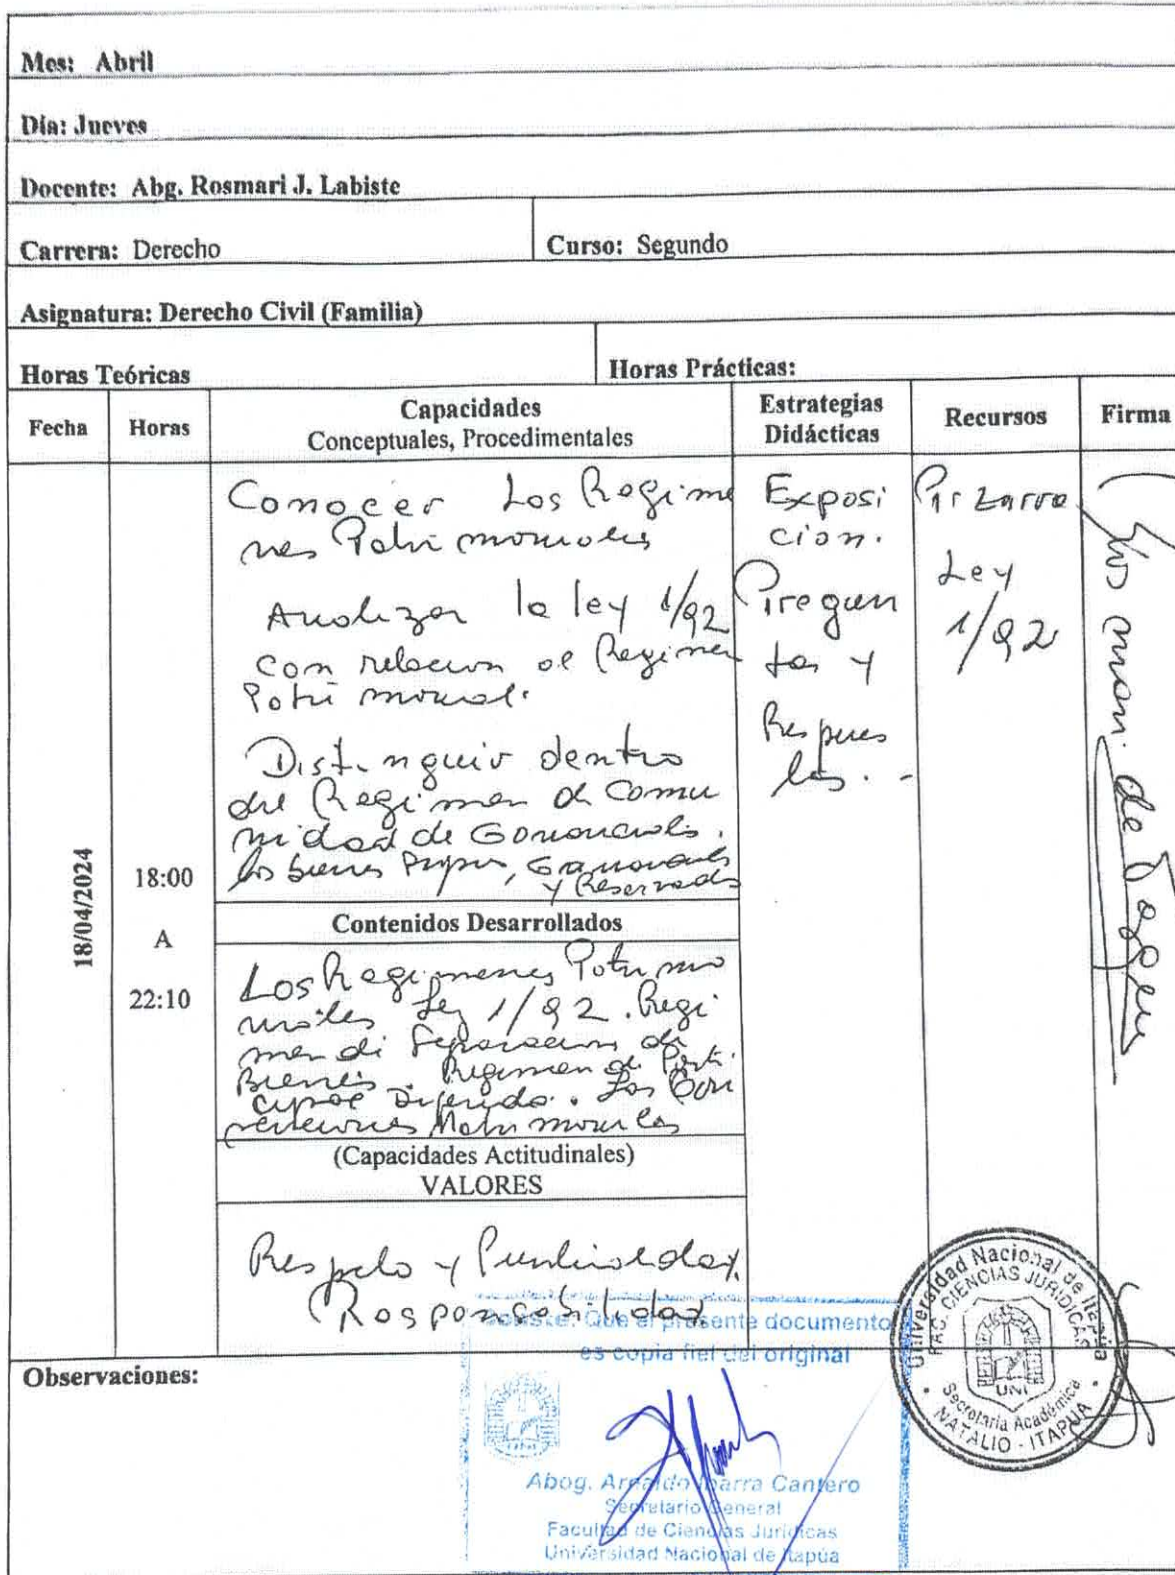 Mes: Abril
Día: Jueves
Docente: Abg. Rosmari J. Labiste
Carrera: Derecho
Curso: Segundo
Asignatura: Derecho Civil (Familia)
Horas Teóricas
Horas Prácticas:
Fecha
Horas
Capacidades
Conceptuales, Procedimentales
Estrategias
Didácticas
Recursos
Firma
18/04/2024
18:00
A
22:10
Conocer Los Regime
nes Patrimoniales
Analizar la ley 1/92
con relacion al Regimen
Patrimonial.
Distinguir dentro
del Regimen de Comu
nidad de Gananciales.
los bienes Propios, Gananciales
y Reservados
Exposi
cion.
Pregun
tas y
Respues
tas. -
Pizarra
Ley
1/92
Contenidos Desarrollados
Los Regimenes Patrimo
niales Ley 1/92. Regi
men de Separacion de
Bienes. Regimen de Parti
cipac Diferido. Las Con
venciones Matrimoniales
(Capacidades Actitudinales)
VALORES
Respeto y Puntualidad.
Responsabilidad
Observaciones:
Conste: Que el presente documento
es copia fiel del original
Abog. Arnaldo Ibarra Cantero
Secretario General
Facultad de Ciencias Jurídicas
Universidad Nacional de Itapúa
Universidad Nacional de Itapúa
FAC. CIENCIAS JURIDICAS
UNI
Secretaría Académica
NATALIO - ITAPUA